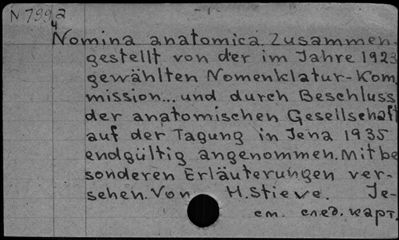 N 7992
- 1 -
Nomina anatomica. Zusammen-
gestellt von der im Jahre 1923
gewählten Nomenklatur-Kom
mission... und durch Beschluss
der anatomischen Gesellschaft
auf der Tagung in Jena 1935
endgültig angenommen. Mit be
sonderen Erläuterungen ver-
sehen. Von H. Stieve. Je-
см. след. карт.